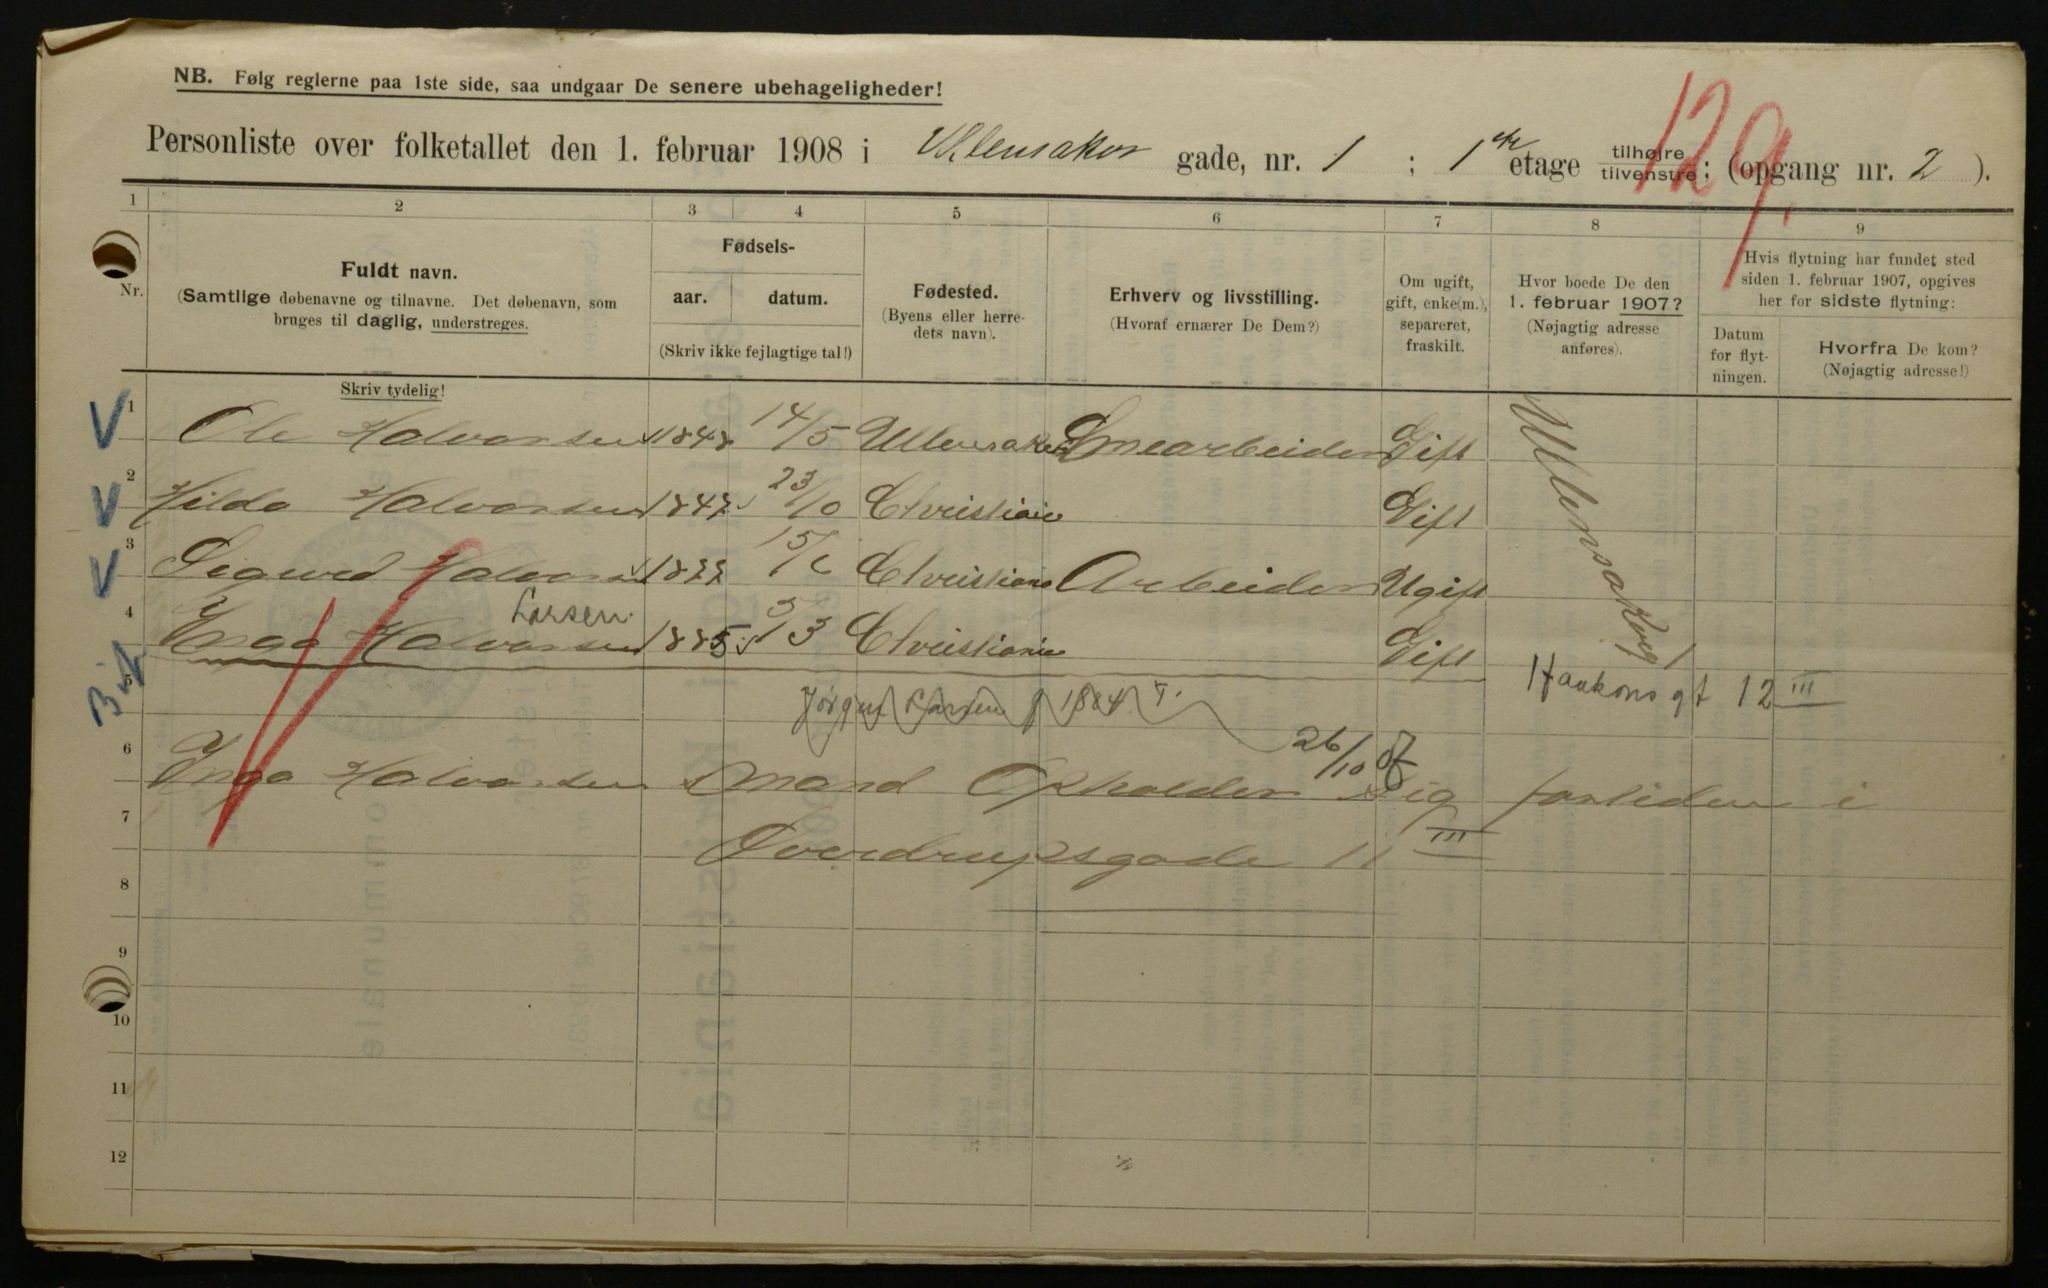 NB. Følg reglerne paa 1ste side, saa undgaar De senere ubehageligheder!
129.
Personliste over folketallet den 1. februar 1908 i Ullensaker gade, nr. 1 ; 1ste etage tilhøjre tilvenstre; (opgang nr. 2 ).
1 2 3 4 5 6 7 8 9
Nr.
Fuldt navn.
(Samtlige døbenavne og tilnavne. Det døbenavn, som
bruges til daglig, understreges.
Skriv tydelig!
Fødsels-
aar. datum.
(Skriv ikke fejlagtige tal!)
Fødested.
(Byens eller herre-
dets navn).
Erhverv og livsstilling.
(Hvoraf ernærer De Dem?)
Om ugift,
gift, enke(m.),
separeret,
fraskilt.
Hvor boede De den
1. februar 1907?
(Nøjagtig adresse
anføres).
Hvis flytning har fundet sted
siden 1. februar 1907, opgives
her for sidste flytning:
Datum
for flyt-
ningen.
Hvorfra De kom?
(Nøjagtig adresse!)
1 Ole Halvorsen 1848 14/5 Ullensaker Smearbeider Gift
2 Hilda Halvorsen 1847 23/10 Christiania Gift
3 Sigurd Halvorsen 1877 15/6 Christiania Arbeider Ugift
Larsen
4 Inga Halvorsen 1885 5/3 Christiania Gift
Ullensakerg 1
5 Jørgen Larsen f 1884 Haakons gt 12 III
6 Inga Halvorsens Mand Opholder Sig fortiden i
26/10 07
7 Sverdrupsgade 11 III
8
9
10
11
12